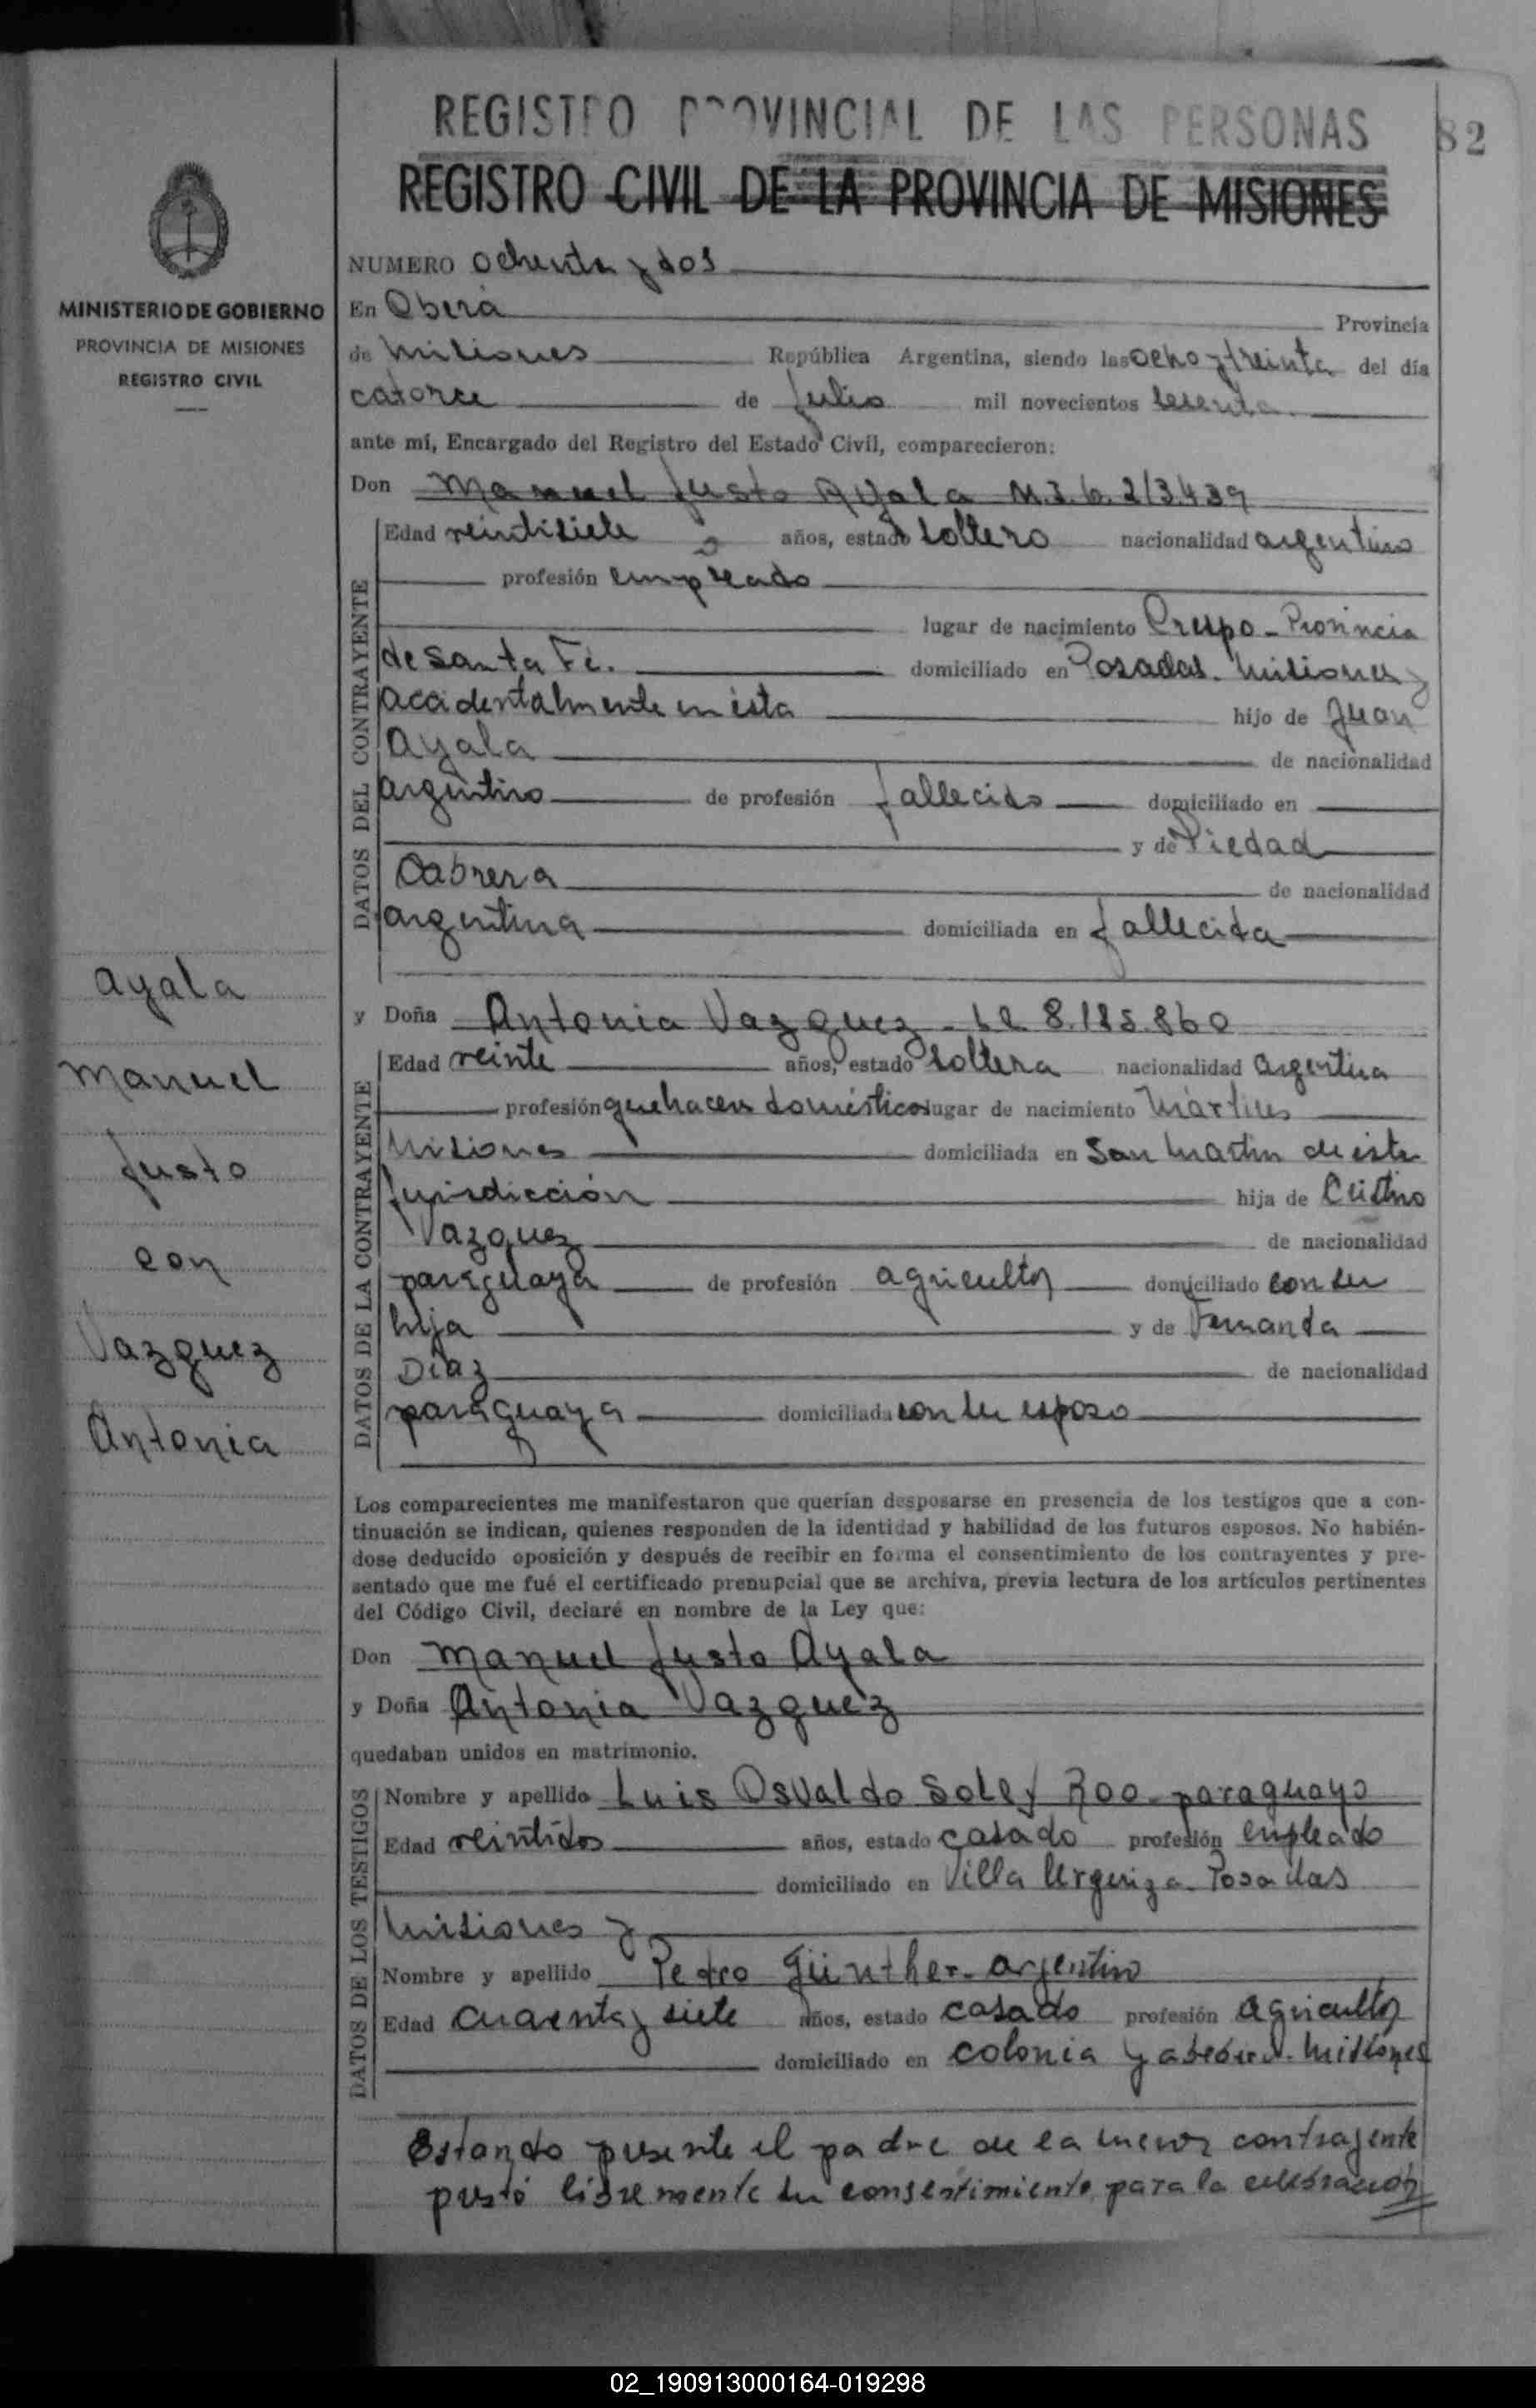 REGISTRO PROVINCIAL DE LAS PERSONAS
82
REGISTRO CIVIL DE LA PROVINCIA DE MISIONES
MINISTERIO DE GOBIERNO
PROVINCIA DE MISIONES
REGISTRO CIVIL
NUMERO ochenta y dos
En Oberá Provincia
de Misiones República Argentina, siendo las ocho y treinta del día
catorce de Julio mil novecientos sesenta
ante mí, Encargado del Registro del Estado Civil, comparecieron:
Don Manuel Justo Ayala M.I. 6.213.439
DATOS DEL CONTRAYENTE
Edad veintisiete años, estado soltero nacionalidad argentino
profesión empleado
lugar de nacimiento Crespo - Provincia
de Santa Fe. domiciliado en Posadas. Misiones y
accidentalmente en ésta hijo de Juan
Ayala de nacionalidad
argentino de profesión fallecido domiciliado en
y de Piedad
Cabrera de nacionalidad
argentina domiciliada en fallecida
y Doña Antonia Vazquez - 8.185.860
DATOS DE LA CONTRAYENTE
Edad veinte años, estado soltera nacionalidad argentina
profesión quehaceres domésticos lugar de nacimiento Mártires
Misiones domiciliada en San Martín de esta
Jurisdicción hija de Cristino
Vazquez de nacionalidad
paraguaya de profesión agricultor domiciliado con su
hija y de Fernanda
Diaz de nacionalidad
paraguaya domiciliada con su esposo
Ayala
Manuel
Justo
con
Vazquez
Antonia
Los comparecientes me manifestaron que querían desposarse en presencia de los testigos que a con-
tinuación se indican, quienes responden de la identidad y habilidad de los futuros esposos. No habién-
dose deducido oposición y después de recibir en forma el consentimiento de los contrayentes y pre-
sentado que me fué el certificado prenupcial que se archiva, previa lectura de los artículos pertinentes
del Código Civil, declaré en nombre de la Ley que:
Don Manuel Justo Ayala
y Doña Antonia Vazquez
quedaban unidos en matrimonio.
DATOS DE LOS TESTIGOS
Nombre y apellido Luis Osvaldo Soley Roo - paraguayo
Edad veintidos años, estado casado profesión empleado
domiciliado en Villa Urquiza - Posadas
Misiones y
Nombre y apellido Pedro Günther - argentino
Edad cuarenta y siete años, estado casado profesión agricultor
domiciliado en colonia Yabebirí. Misiones
Estando presente el padre de la menor contrayente
prestó libremente su consentimiento para la celebración
02_190913000164-019298